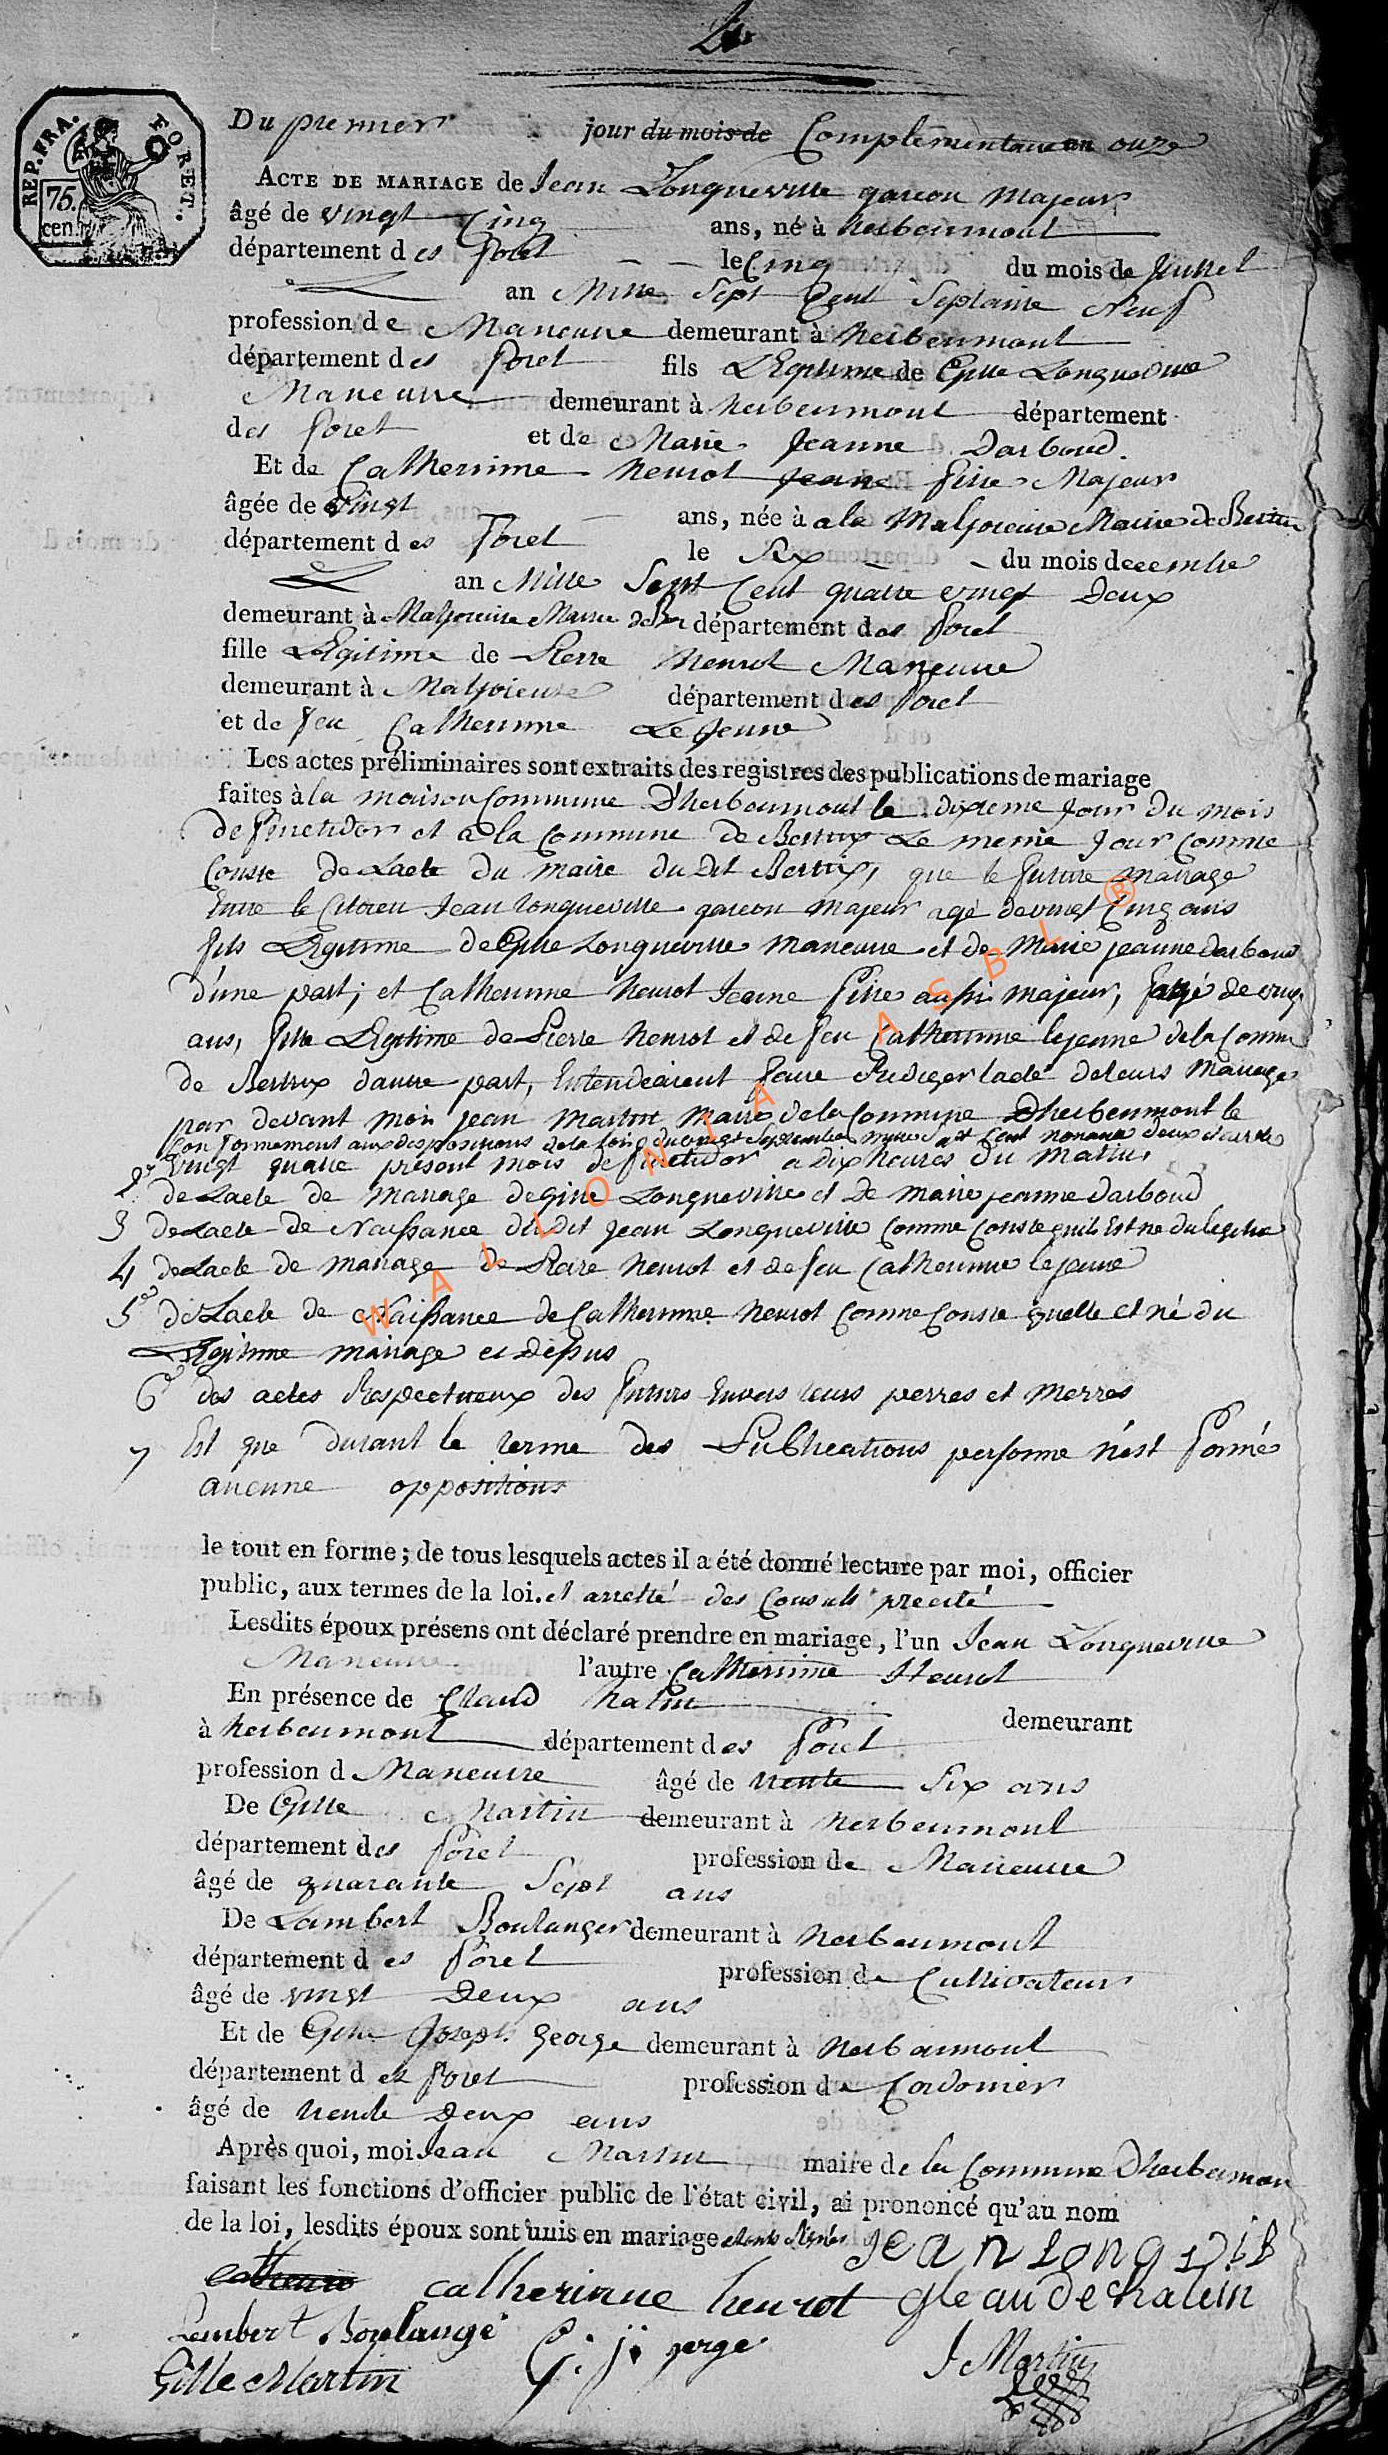 REP. FRA. FORET.
75.
cen.
Du premier jour du mois de Complementaire an onze
ACTE DE MARIAGE de Jean Longueville garcon Majeur
âgé de vingt Cinq ans, né à herbeumont
département des foret le Cinq du mois de Juillet
an Mille Sept Cent Septante Neuf
profession de Maneuvre demeurant à herbeumont
département des foret fils Légitime de Gille Longueville
Maneuvre demeurant à herbeumont département
des foret et de Marie Jeanne Darboud.
Et de Catherinne henrot jeane fille Majeur
âgée de vingt ans, née à a la Maljoieuse Mairie de Bertrix
département des foret le Six du mois decembre
an Mille Sept Cent quatre vingt Deux
demeurant à Maljoieuse Mairie de Br département des foret
fille Légitime de Pierre henrot Maneuvre
demeurant à Maljoieuse département des foret
et de feu Catherinne Le Jeune
Les actes préliminaires sont extraits des registres des publications de mariage
faites à la maison Commune D'herbeumont le dixieme Jour du mois
de fructidor et a la Commune de Bertrix Le meme Jour Comme
Conste de Lacte du maire du Dit Bertrix, que le future mariage
Entre le Citoien Jean longueville garcon majeur agé de vingt Cinq ans
fils Légitime de Gille Longueville maneuvre et de Marie jeanne darboud
d'une part; et Catherinne henrot Jeanne fille aussi majeur, agé de vingt
ans, fille Légitime de Pierre henrot et de feu Catherinne lejeune de la Commune
de Bertrix dautre part, Entendeoient faire Rediger lacte de leurs Mariage
par devant moi jean martin Maire de la Commune D'herbeumont le
Conformement aux dispositions de la loi du vingt Septembre mille Sept Cent nonante deux
vingt quatre présent mois de fructidor a Dix heures du Matin,
2° de Lacte de mariage de Gille Longueville et de marie jeanne darboud
3 de Lacte de Naissance du dit Jean Longueville Comme Conste quil Est né du legitime
4 de Lacte de mariage de Pierre henrot et de feu Catherinne le jeune
5° de Lacte de Naissance de Catherinne henrot Comme Conste quelle et né du
Légitime mariage ci Dessus
6° des actes Respectueux des futurs Envers leurs perres et merres
7 Et que durant le terme des Publications personne n'est formé
aucune oppositions
le tout en forme; de tous lesquels actes il a été donné lecture par moi, officier
public, aux termes de la loi. et arretté des Consuls precité
Lesdits époux présens ont déclaré prendre en mariage, l'un Jean Longueville
Maneuvre l'autre Catherinne Henrot
En présence de Claud halin demeurant
à herbeumont département des foret
profession d Maneuvre âgé de trente Six ans
De Gille Martin demeurant à herbeumont
département des foret profession de Maneuvre
âgé de quarante Sept ans
De Lambert Boulanger demeurant à herbeumont
département des foret profession de Cultivateur
âgé de vingt Deux ans
Et de Gille Joseph George demeurant à herbeumont
département des foret profession de Cordonier
âgé de trente Deux ans
Après quoi, moi Jean Martin maire de la Commune D'herbeumon
faisant les fonctions d'officier public de l'état civil, ai prononcé qu'au nom
de la loi, lesdits époux sont unis en mariage
jean longuvil
catherinne henrot gleaude halin
Lambert Boulange G. j. jerge J Martin
Gille Martin
WALLONIA ASBL ®